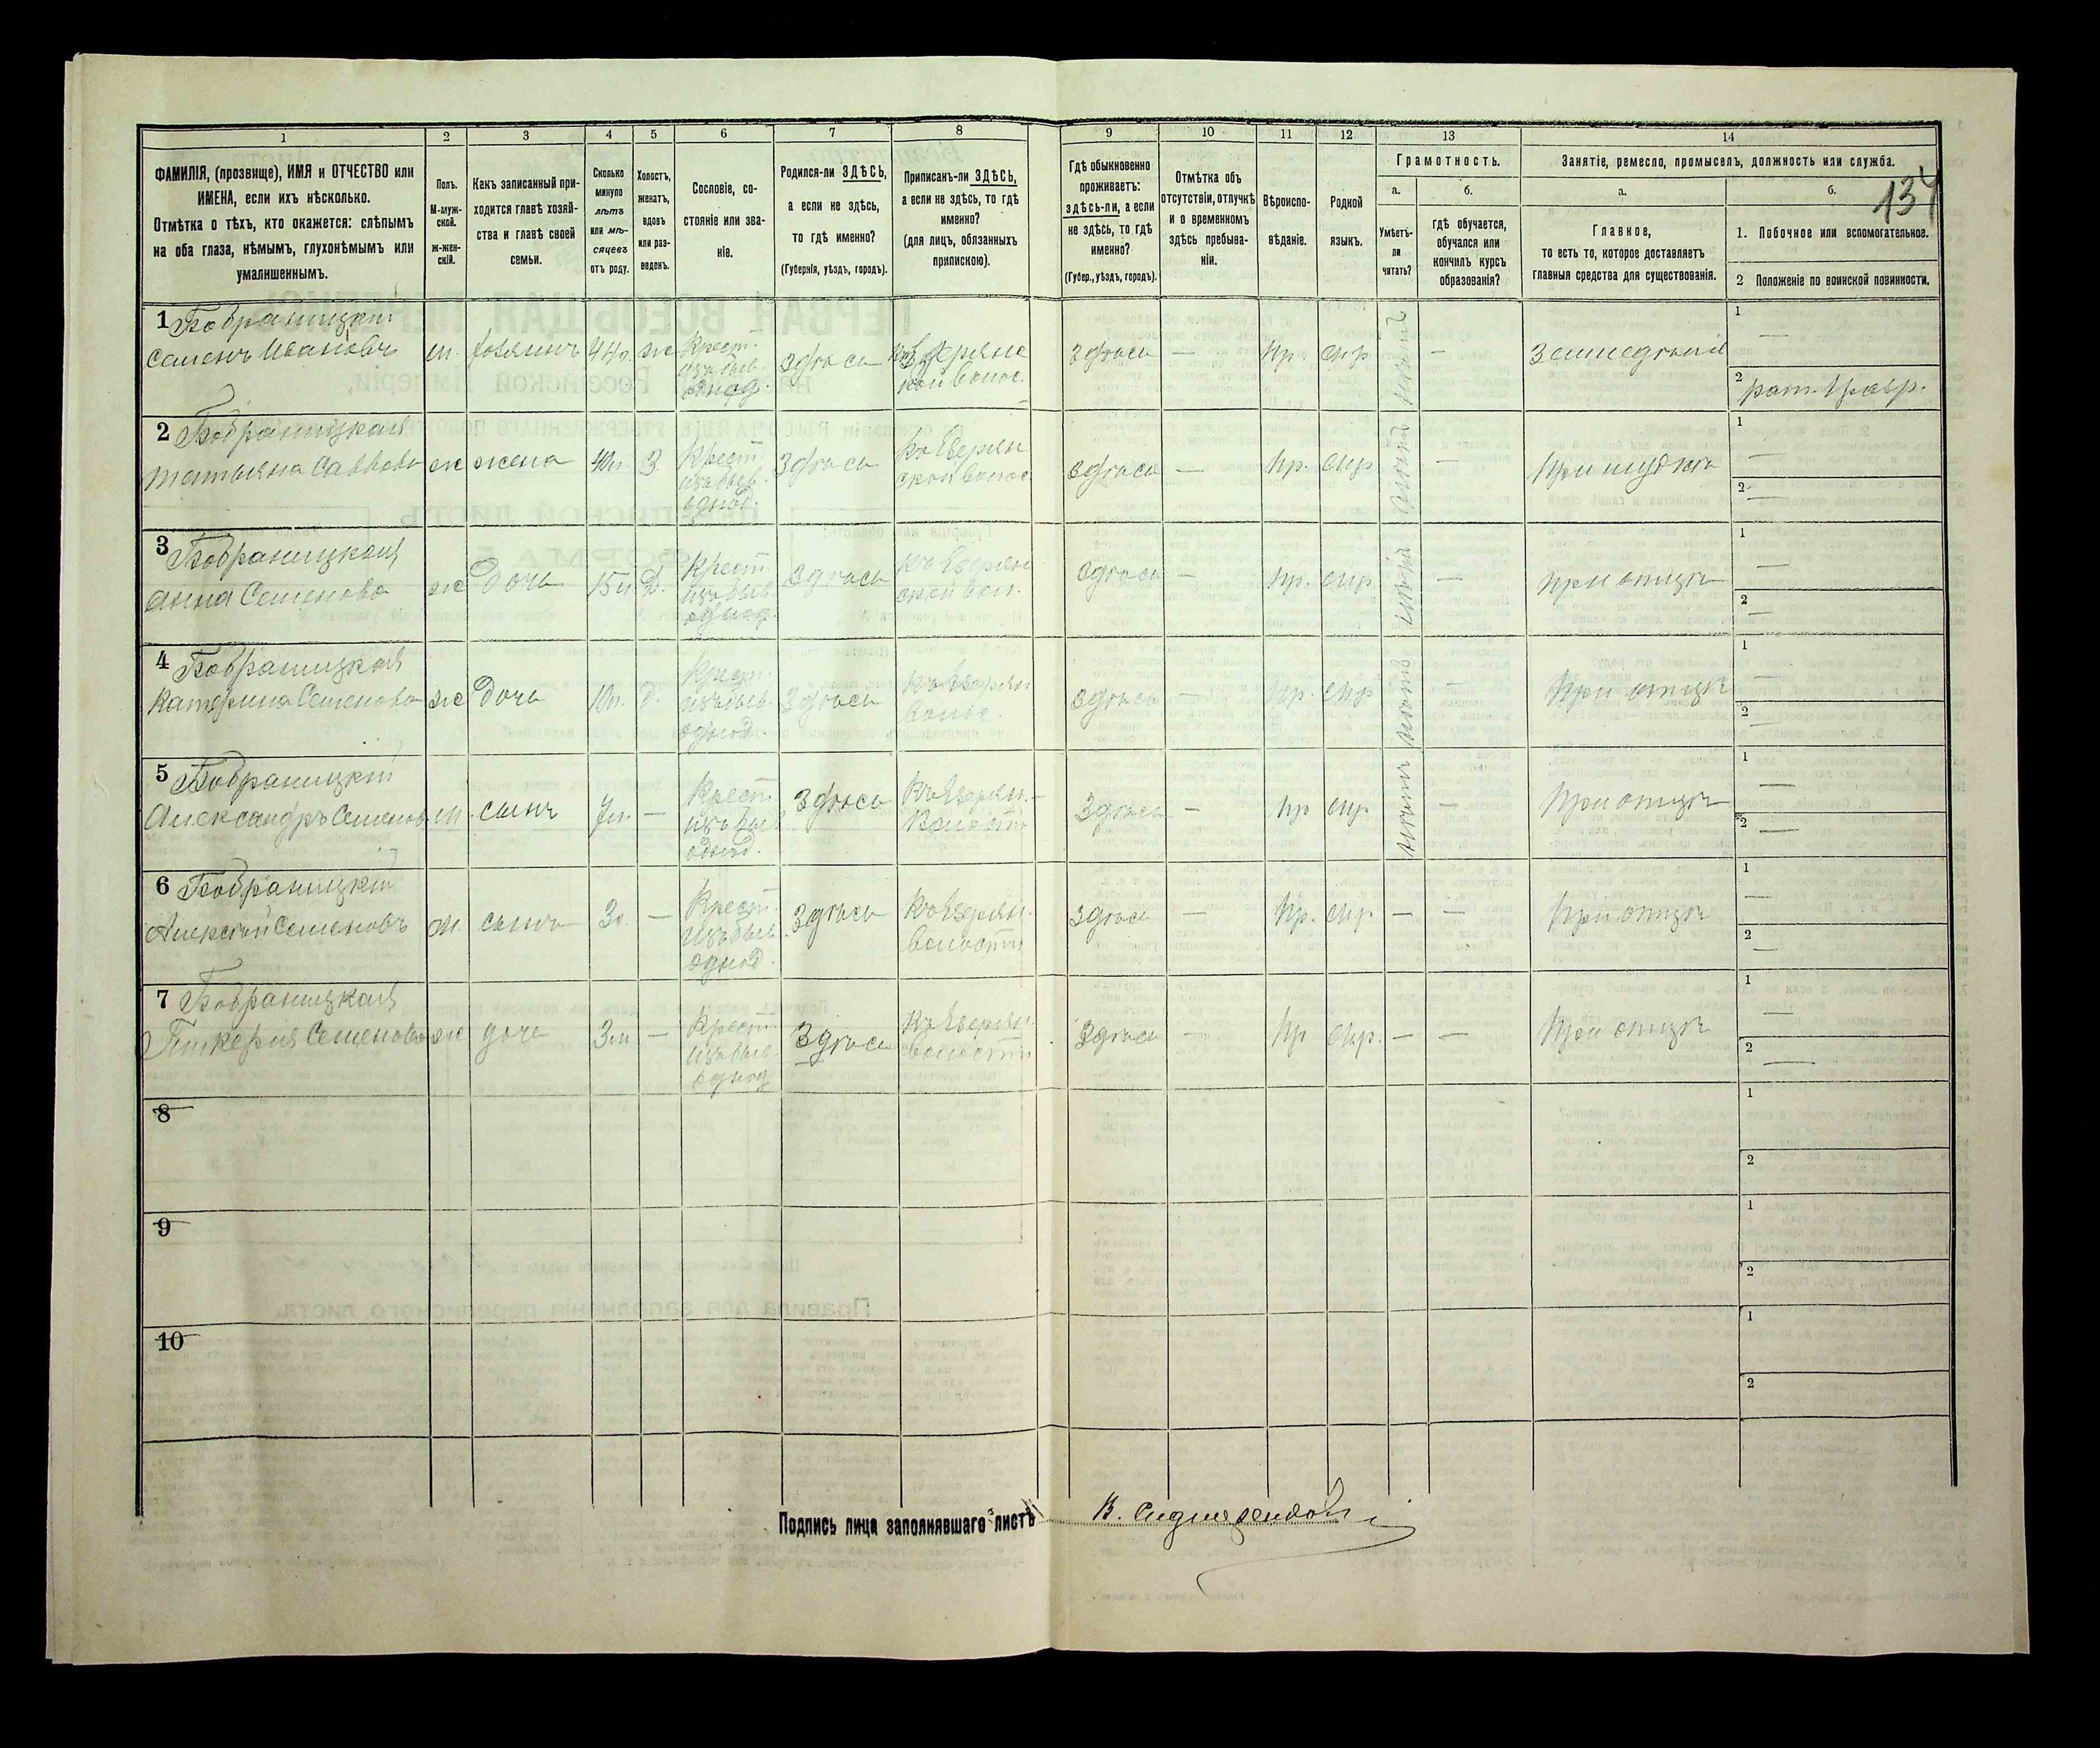 1 2 3 4 5 6 7 8 9 10 11 12 13 14
ФАМИЛІЯ, (прозвище), ИМЯ и ОТЧЕСТВО или
ИМЕНА, если ихъ нѣсколько.
Отмѣтка о тѣхъ, кто окажется: слѣпымъ
на оба глаза, нѣмымъ, глухонѣмымъ или
умалишеннымъ.
Полъ.
М-муж-
ской.
ж-жен-
скій.
Какъ записанный при-
ходится главѣ хозяй-
ства и главѣ своей
семьи.
Сколько
минуло
лѣтъ
или мѣ-
сяцевъ
отъ роду.
Холостъ,
женатъ,
вдовъ
или раз-
веденъ.
Сословіе, со-
стояніе или зва-
ніе.
Родился-ли ЗДѢСЬ,
а если не здѣсь,
то гдѣ именно?
(Губернія, уѣздъ, городъ).
Приписанъ-ли ЗДѢСЬ,
а если не здѣсь, то гдѣ
именно?
(для лицъ, обязанныхъ
припискою).
Гдѣ обыкновенно
проживаетъ:
здѣсь-ли, а если
не здѣсь, то гдѣ
именно?
(Губер., уѣздъ, городъ).
Отмѣтка объ
отсутствіи, отлучкѣ
и о временномъ
здѣсь пребыва-
ніи.
Вѣроиспо-
вѣданіе.
Родной
языкъ.
Грамотность.
а.
Умѣетъ-
ли
читать?
б.
гдѣ обучается,
обучался или
кончилъ курсъ
образованія?
Занятіе, ремесло, промыселъ, должность или служба.
а.
Главное,
то есть то, которое доставляетъ
главныя средства для существованія.
б.
134
1. Побочное или вспомогательное.
2 Положеніе по воинской повинности.
1 Бобраницкій
Семенъ Ивановъ м. хозяинъ 44 г. ж Крест. изъ быв. однод. здѣсь здѣсь — пр. мр. — Земледѣліе
1 —
2 рат.
2 Бобраницкая
Татьяна Саввова ж жена 40 л. З. Крест. изъ быв. однод. Здѣсь здѣсь — пр. мр. — При мужѣ
1 —
2 —
3 Бобраницкая
Анна Семенова ж дочь 15 л. д. Крест. изъ быв. однод. Здѣсь здѣсь — пр. мр. — при отцѣ
1 —
2 —
4 Бобраницкая
Катерина Семенова ж дочь 10 л. д. Крест. изъ быв. однод. Здѣсь здѣсь — пр. мр. — При отцѣ
1 —
2 —
5 Бобраницкій
Александръ Семеновъ м. сынъ 7 л. — Крест. изъ быв. однод. Здѣсь Здѣсь — пр мр. — При отцѣ
1 —
2 —
6 Бобраницкій
Алексѣй Семеновъ м. сынъ 3 г. — Крест. изъ быв. однод. Здѣсь волости здѣсь — пр. мр — — При отцѣ
1 —
2 —
7 Бобраницкая
Гликерія Семенова ж дочь 3 м — Крест. изъ быв. однод Здѣсь волости Здѣсь — пр мр. — — При отцѣ
1 —
2 —
8
1
2
9
1
2
10
1
2
Подпись лица заполнявшаго листъ